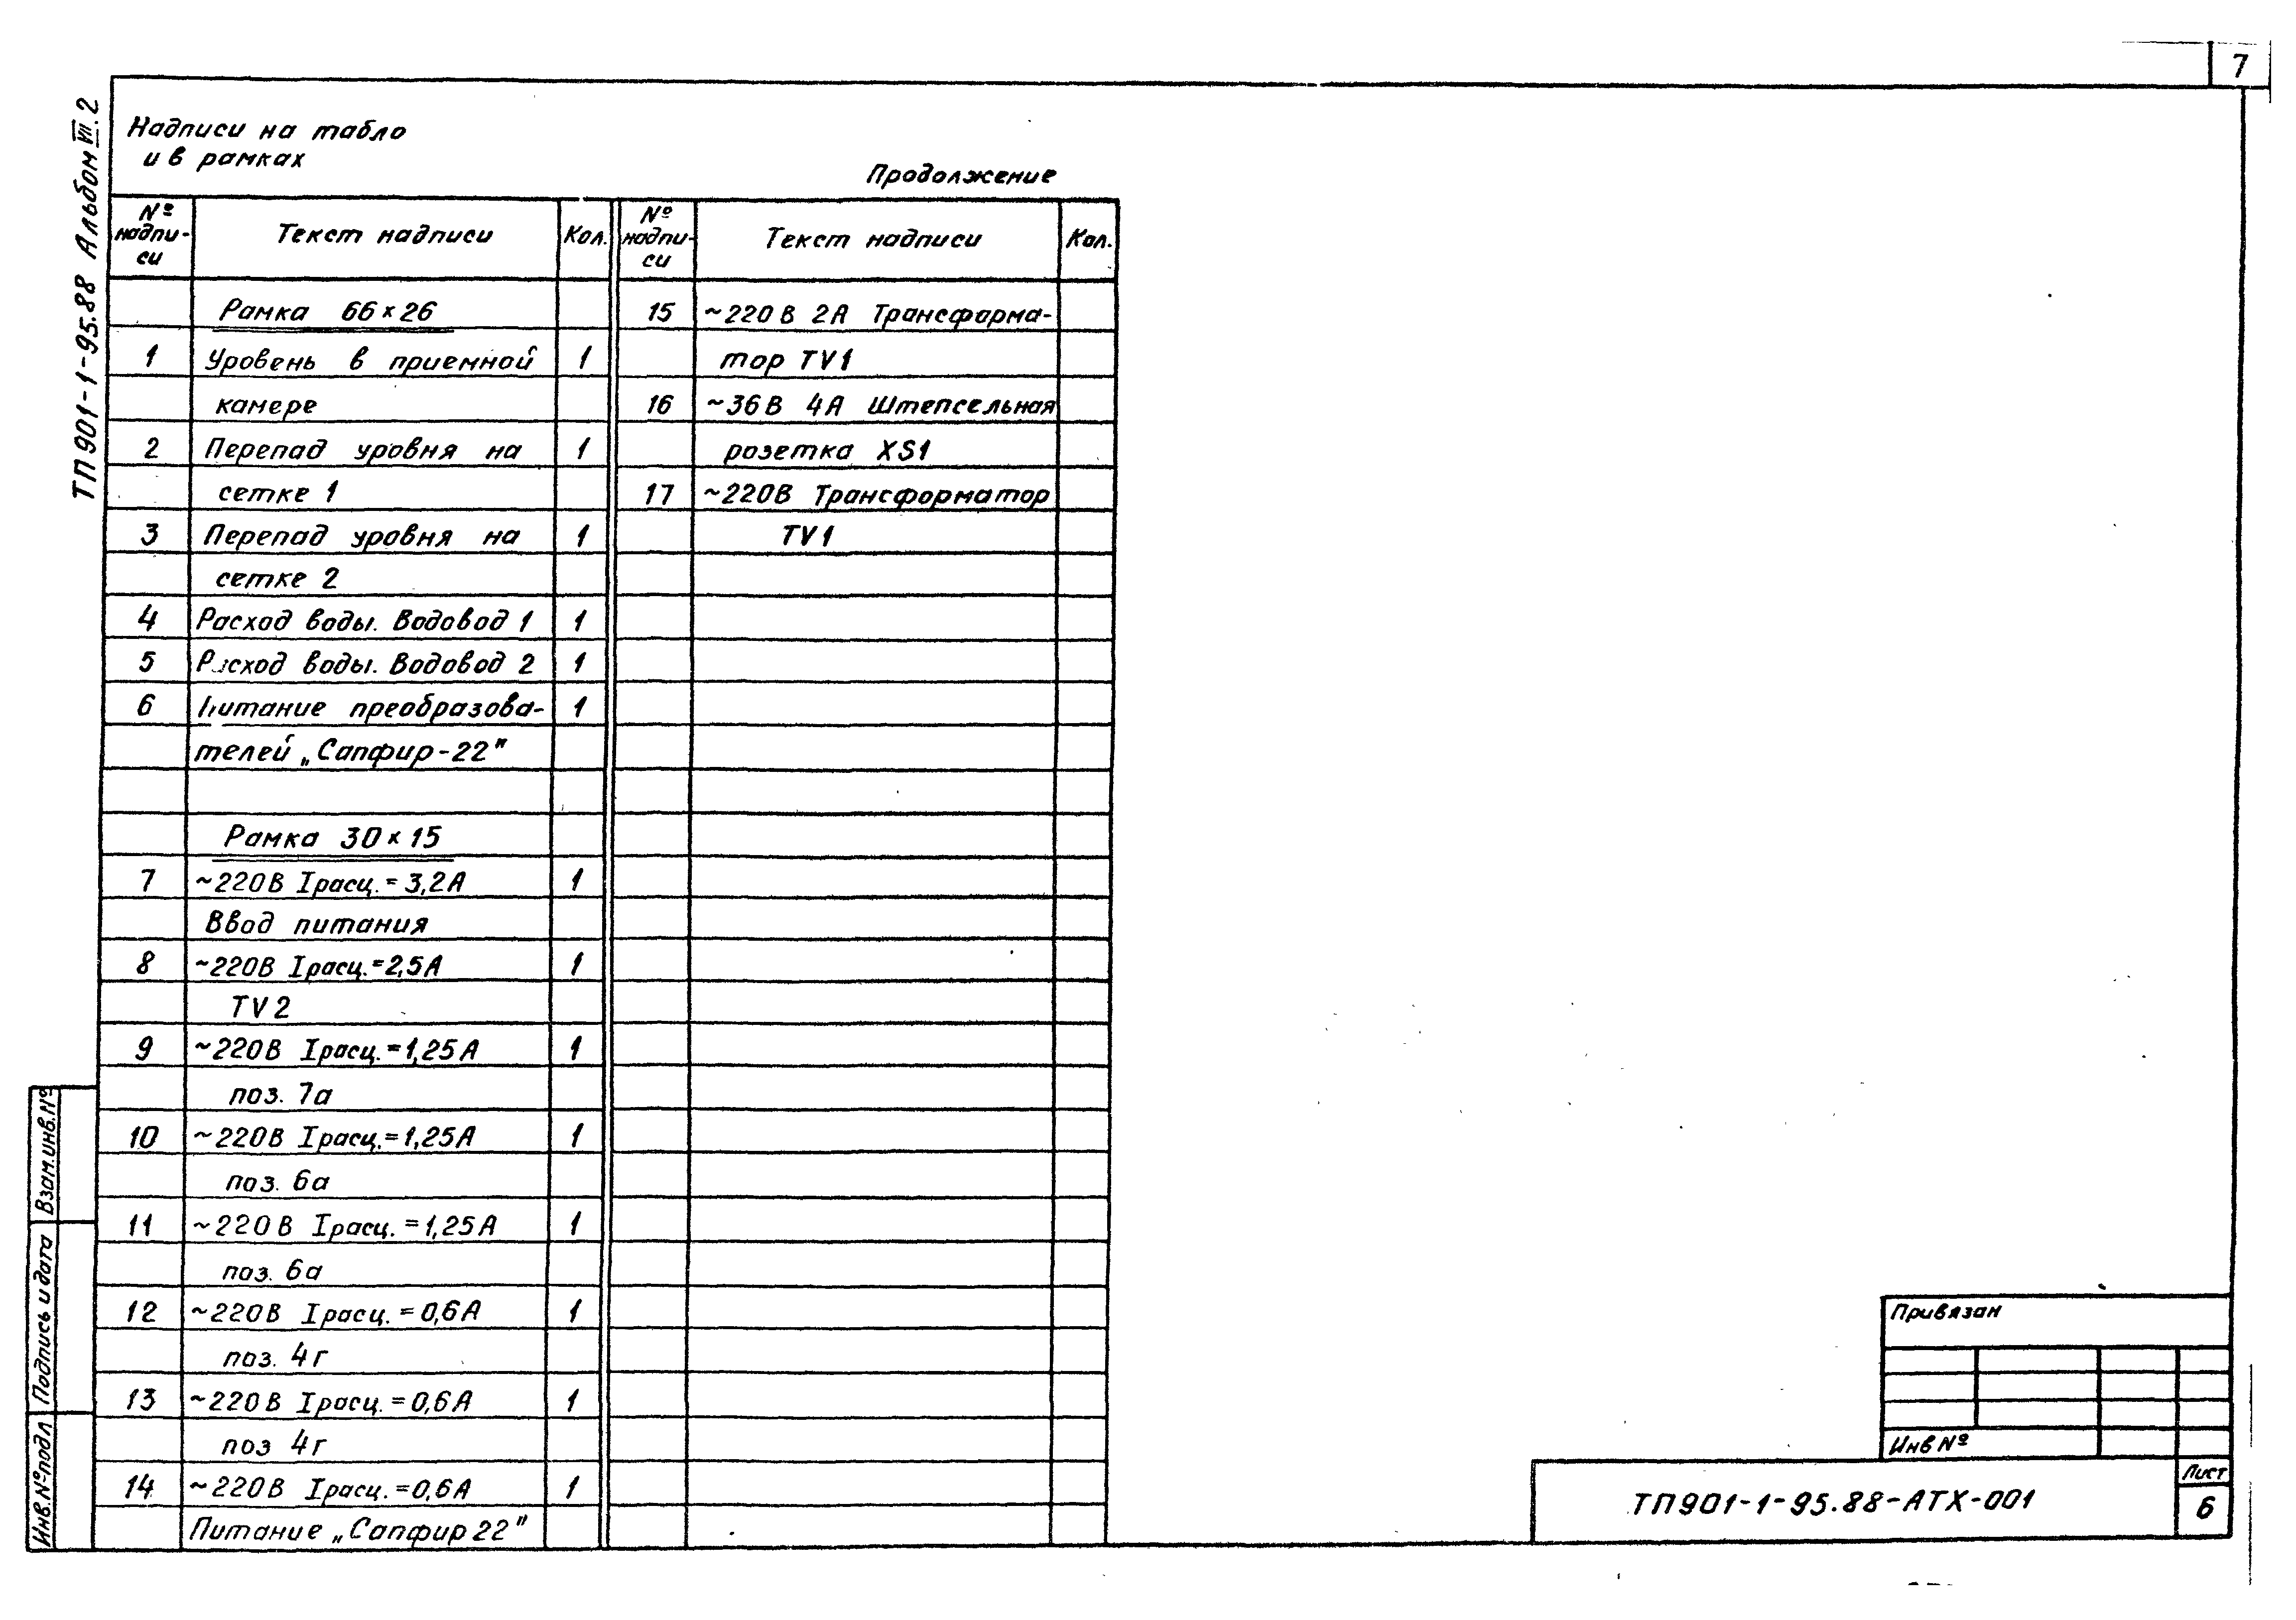 7
ТП901-1-95.88 Альбом VII.2
Надписи на табло
и в рамках
Продолжение
№ надпи-си Текст надписи Кол.
Рамка 66×26
1 Уровень в приемной 1
камере
2 Перепад уровня на 1
сетке 1
3 Перепад уровня на 1
сетке 2
4 Расход воды. Водовод 1 1
5 Расход воды. Водовод 2 1
6 Питание преобразова- 1
телей „Сапфир-22"
Рамка 30×15
7 ~220В Iрасц.=3,2А 1
Ввод питания
8 ~220В Iрасц.=2,5А 1
TV2
9 ~220В Iрасц.=1,25А 1
поз. 7а
10 ~220В Iрасц.=1,25А 1
поз. 6а
11 ~220В Iрасц.=1,25А 1
поз. 6а
12 ~220В Iрасц.=0,6А 1
поз. 4г
13 ~220В Iрасц.=0,6А 1
поз 4г
14 ~220В Iрасц.=0,6А 1
Питание „Сапфир 22"
№ надпи-си Текст надписи Кол.
15 ~220В 2А Трансформа-
тор TV1
16 ~36В 4А Штепсельная
розетка XS1
17 ~220В Трансформатор
TV1
Взам.инв.№
Подпись и дата
Инв.№подл
Привязан
Инв №
ТП901-1-95.88-АТХ-001
Лист
6